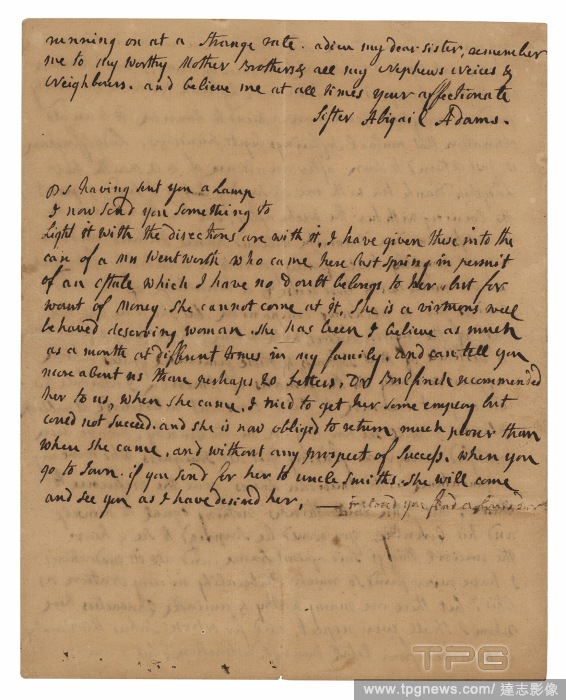 running on at a strange rate. adieu my dear sister, remember
me to my worthy Mother Brothers & all my Nephews Neices &
Neighbours. and believe me at all times your affectionate
Sister Abigail Adams.
PS having sent you a Lamp
I now send you something to
Light it with the directions are with it. I have given these into the
care of a Mrs Wentworth who came here last spring in persuit
of an estate which I have no doubt belongs to her, but for
want of money she cannot come at it. She is a virtuous well
behaved deserving woman. she has been I believe as much
as a month at different times in my family, and can tell you
more about us than perhaps 20 Letters, Dr Bulfinch recommended
her to us, when she came, I tried to get her some employ but
could not succeed. and she is now obliged to return much poorer than
when she came. and without any prospect of success. when you
go to Town. if you send for her to uncle Smiths. she will come
and see you as I have desired her, — inclosed you find a
TPG
www.tpgnews.com / 達志影像